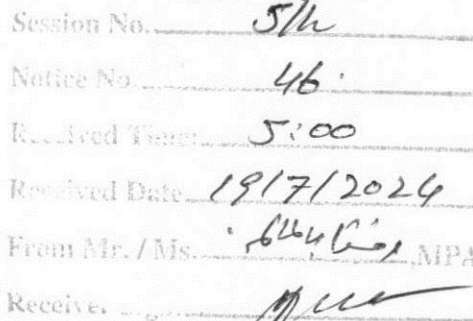 Session No. 5th
Notice No. 46.
Received Time: 5:00
Received Date 19/7/2024
From Mr. / Ms. , MPA
Receive.